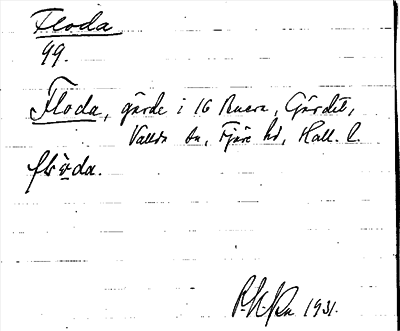 Floda
99.
Floda, gärde i 16 Buera, Gärdet,
Vallda sn, Fjäre hd, Hall. l.
1931.